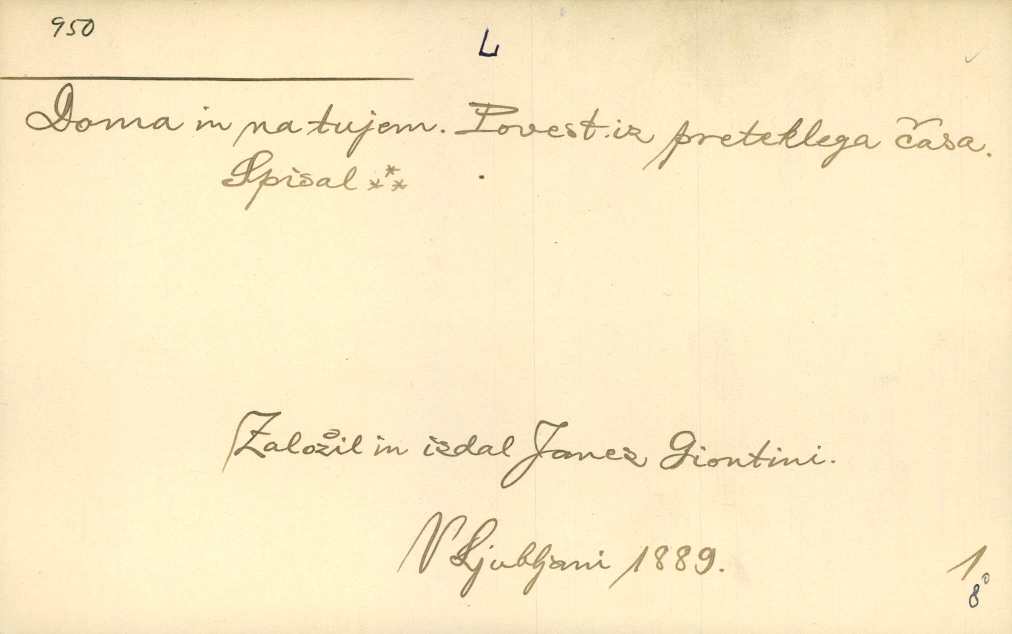 950
L
Doma in na tujem. Povest iz preteklega časa.
Spisal ***
Založil in izdal Janez Giontini.
V Ljubljani 1889.
1
8°